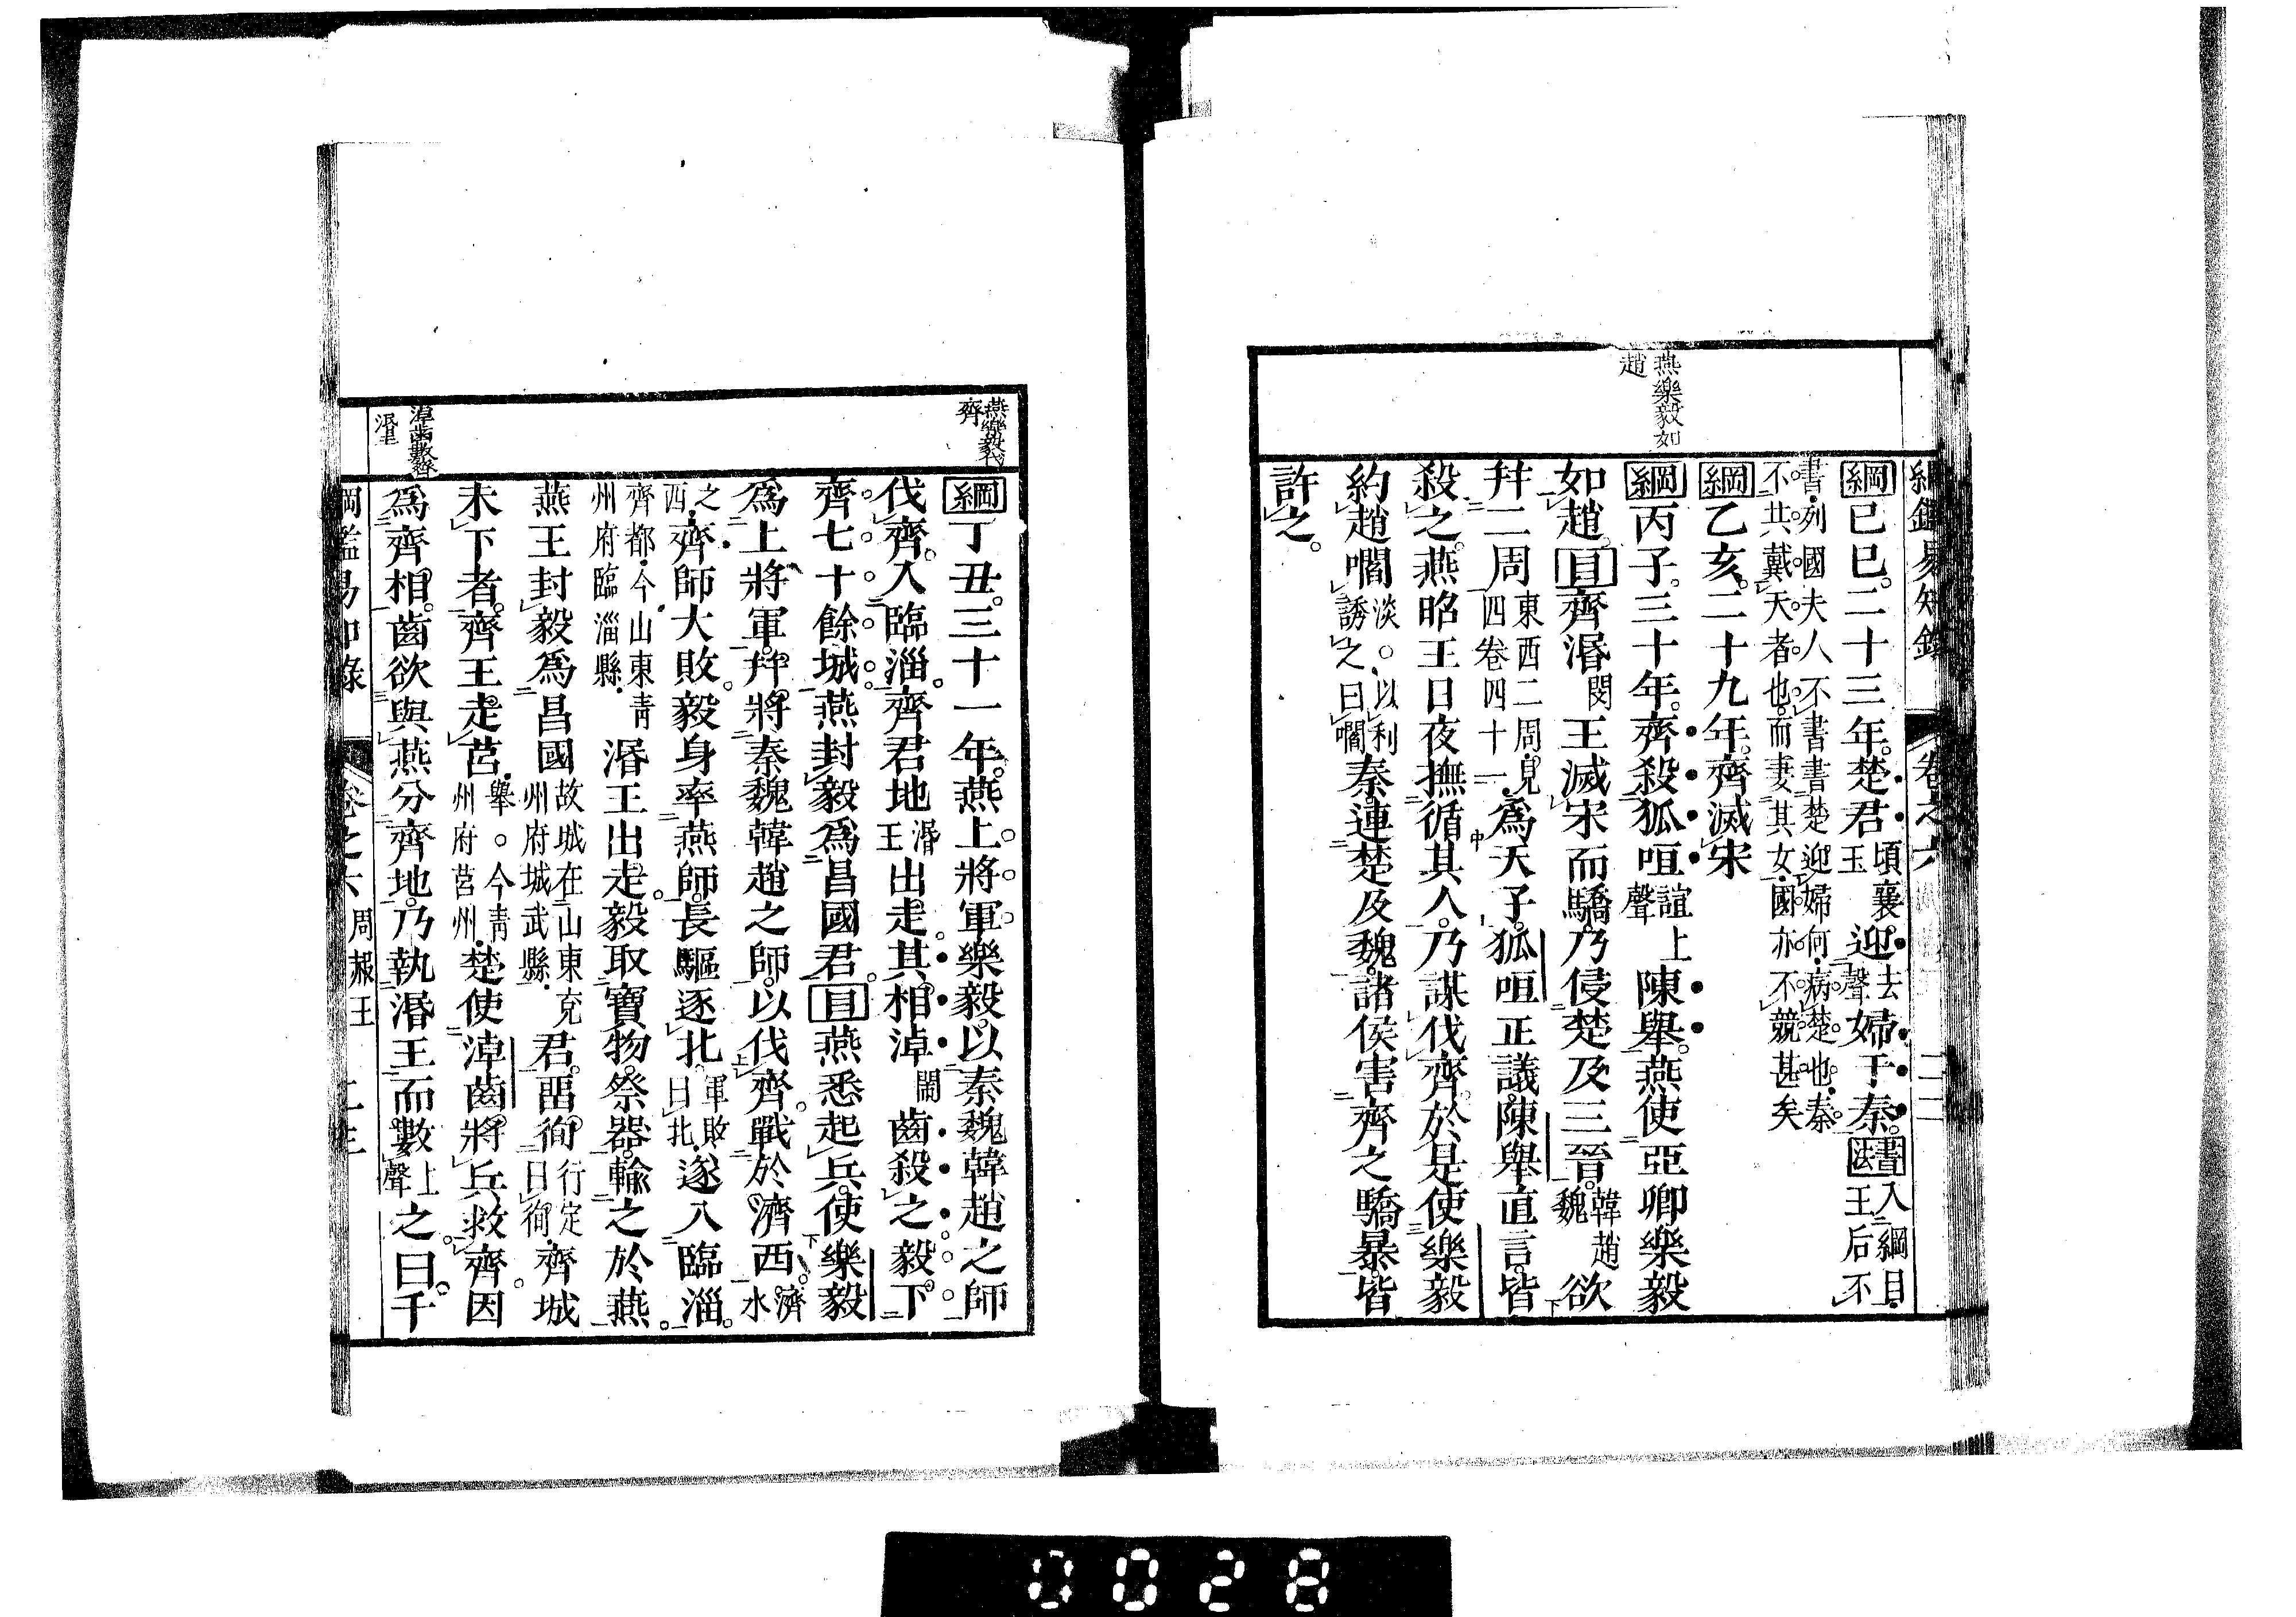 綱鑑易知錄 卷之六 二二
燕樂毅如
趙
綱己巳。二十三年。楚君頃襄王迎去聲婦于秦。書法入綱目。王后不
書。列國夫人不書。書楚迎婦何。病楚也。秦
不共戴天者也。而妻其女。國亦不競甚矣
綱乙亥。二十九年。齊滅宋
綱丙子。三十年。齊殺狐咺諠上聲陳舉。燕使亞卿樂毅
如趙。目齊湣閔王滅宋而驕。乃侵楚及三晉。韓趙魏欲
幷二周東西二周。見四卷四十一。爲天子。狐咺正議。陳舉直言。皆
殺之。燕昭王日夜撫循其人。乃謀伐齊。於是使樂毅
約趙嚪淡。以利誘之曰嚪秦。連楚及魏。諸侯害齊之驕暴。皆
許之。
燕樂毅伐
齊
綱丁丑。三十一年。燕上將軍樂毅。以秦魏韓趙之師
伐齊。入臨淄。齊君地湣王出走。其相淖鬧齒殺之。毅下
齊七十餘城。燕封毅爲昌國君。目燕悉起兵。使樂毅
爲上將軍。幷將秦魏韓趙之師。以伐齊。戰於濟西。濟水
之西。齊師大敗。毅身率燕師。長驅逐北。軍敗曰北。遂入臨淄。
齊都。今山東靑州府臨淄縣。湣王出走。毅取寶物。祭器。輸之於燕。
燕王封毅爲昌國故城在山東兗州府城武縣。君。畱徇行定曰徇。齊城
未下者。齊王走莒。舉。今靑州府莒州。楚使淖齒。將兵救齊。因
爲齊相。齒欲與燕分齊地。乃執湣王而數上聲之曰。千
淖齒數齊
湣王
綱鑑易知錄 卷之六 周赧王 二三
0028